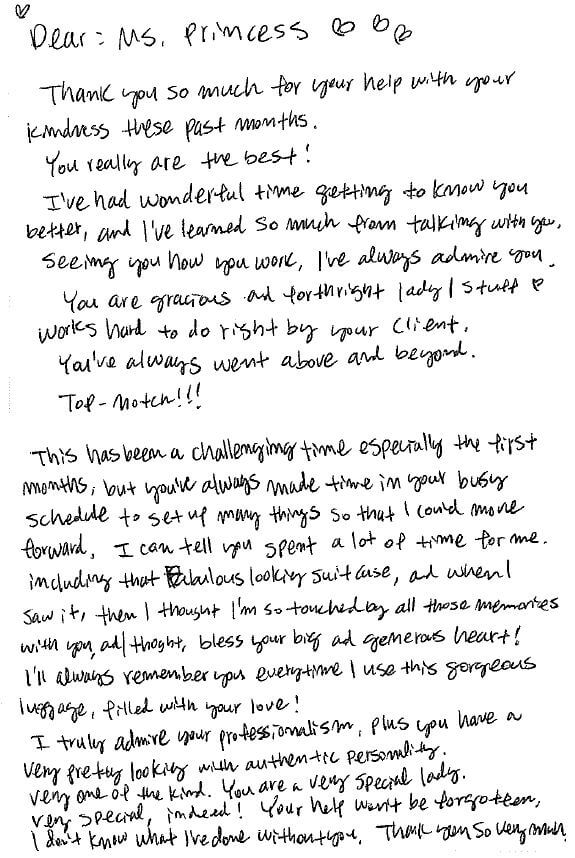 Dear: Ms. Princess
Thank you so much for your help with your
kindness these past months.
You really are the best!
I've had wonderful time getting to know you
better, and I've learned so much from talking with you.
Seeing you how you work, I've always admire you.
You are gracious ad forthright lady / stuff
works hard to do right by your client.
You've always went above and beyond.
Top-notch!!!
This has been a challenging time especially the first
months, but you've always made time in your busy
schedule to set up many things so that I could move
forward. I can tell you spent a lot of time for me.
including that fabulous looking suitcase, ad when I
saw it, then I thought I'm so touched by all those memories
with you, ad I thoght, bless your big ad generous heart!
I'll always remember you everytime I use this gorgeous
luggage, filled with your love!
I truly admire your professionalism, plus you have a
very pretty looking with authentic personality.
very one of the kind. You are a very special lady.
very special, indeed! Your help won't be forgotten,
I don't know what I've done without you. Thank you so very much.